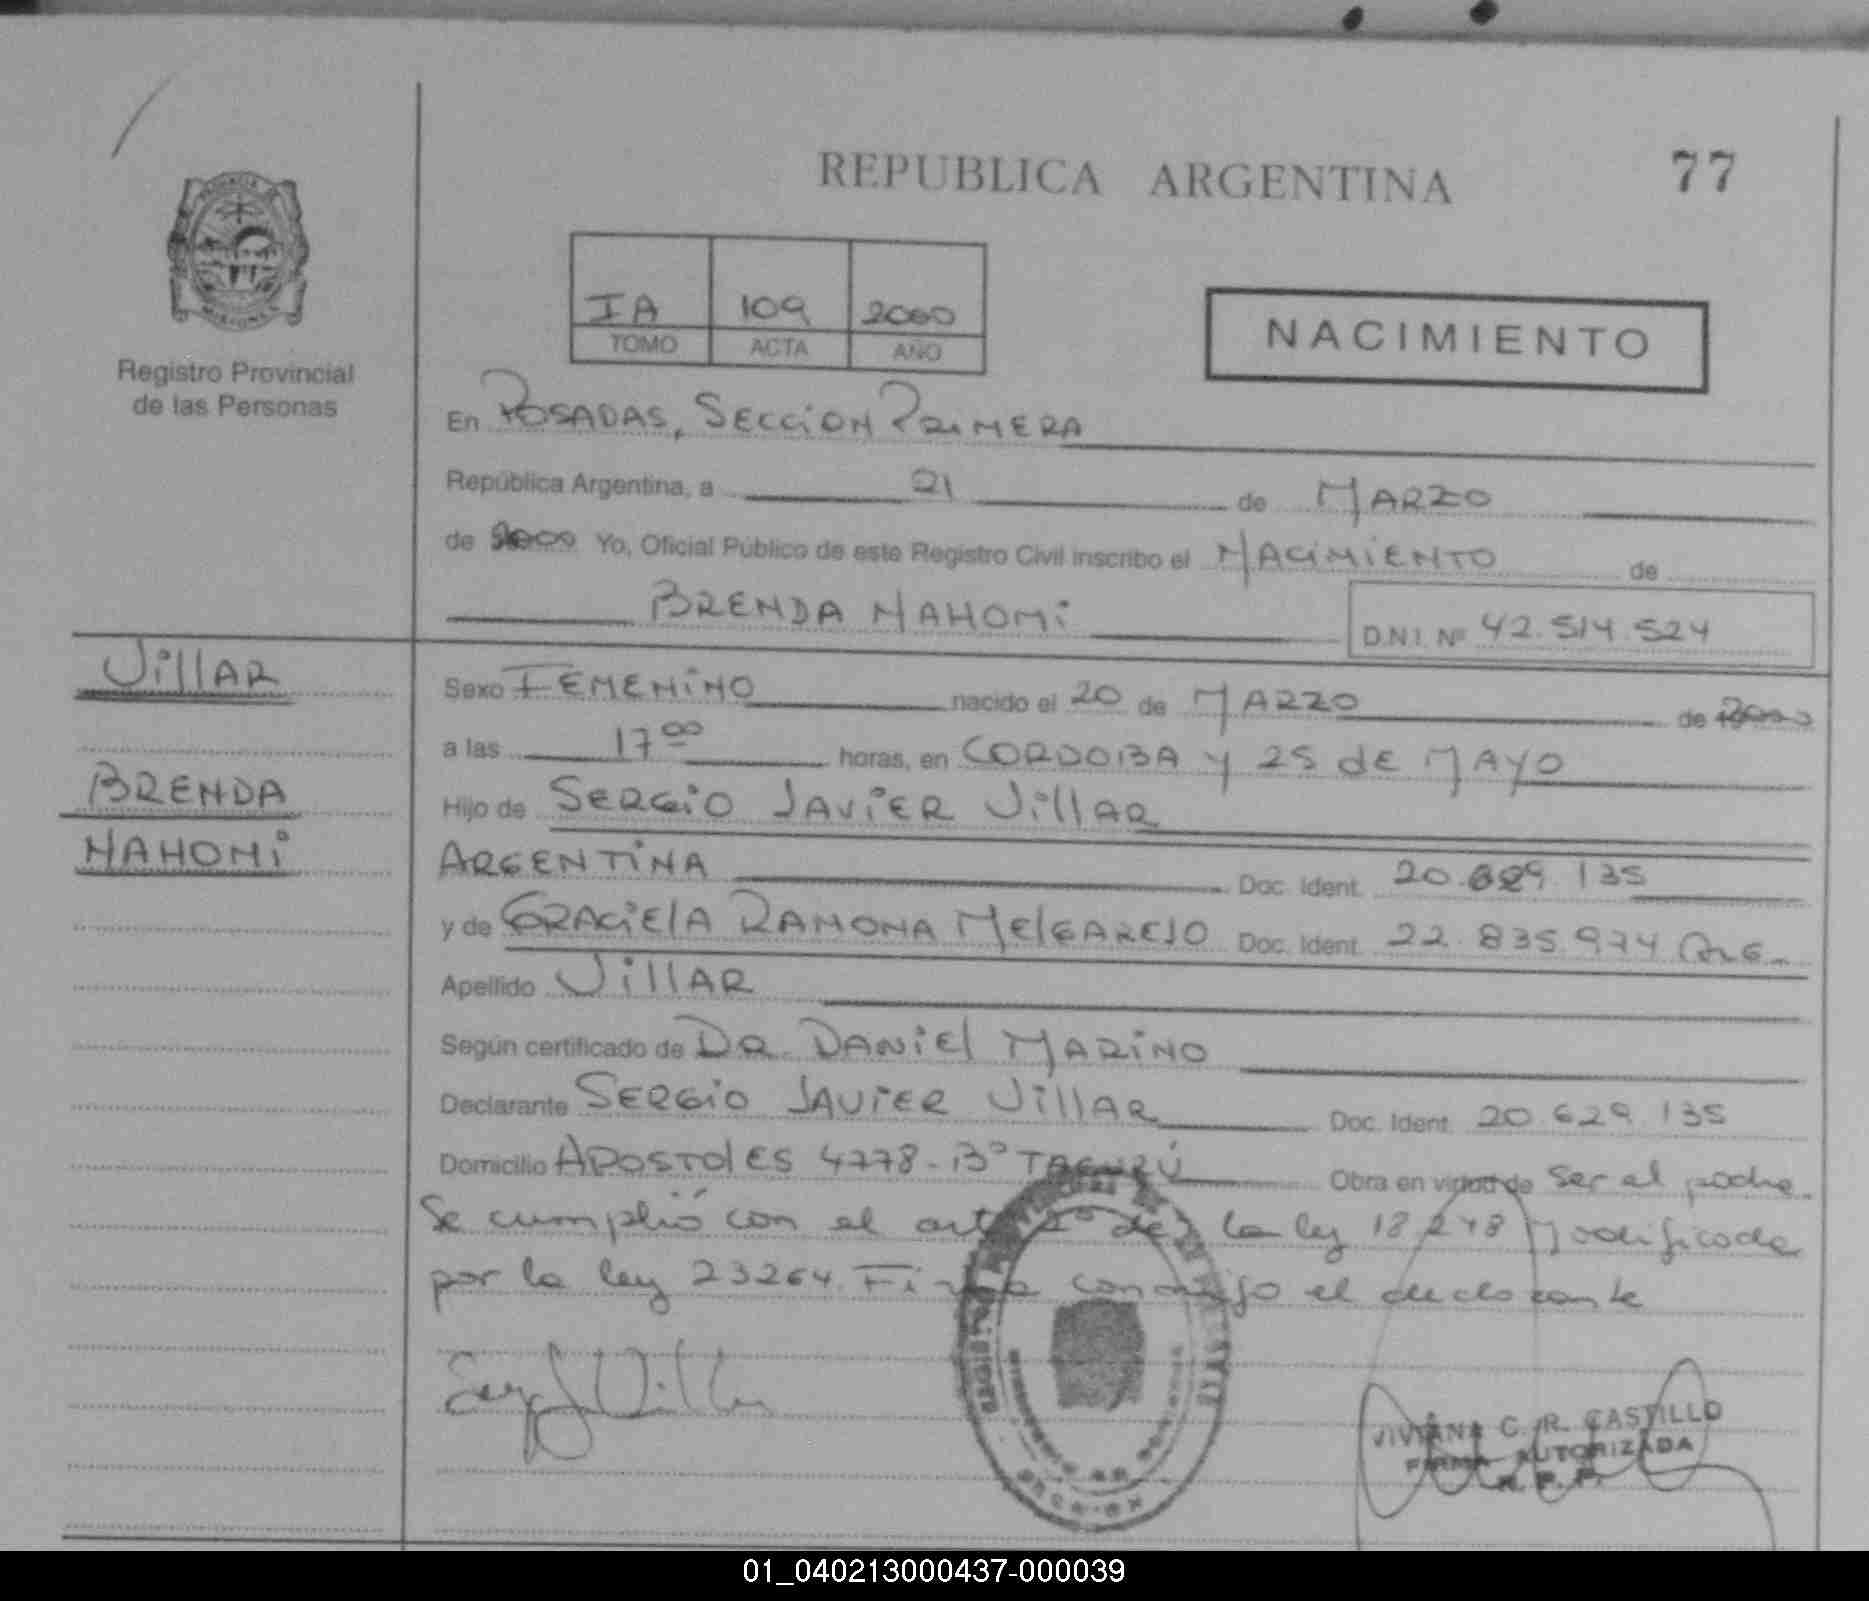 REPUBLICA ARGENTINA
77
IA 109 2000
TOMO ACTA AÑO
NACIMIENTO
Registro Provincial
de las Personas
En POSADAS, SECCION PRIMERA
República Argentina, a 21 de MARZO
de 2000 Yo, Oficial Público de este Registro Civil inscribo el NACIMIENTO de
BRENDA NAHOMI D.N.I. Nº 42.514.524
VillAR
BRENDA
NAHOMI
Sexo FEMENINO nacido el 20 de MARZO de 2000
a las 17 00 horas, en CORDOBA y 25 de MAYO
Hijo de SERGIO JAVIER VillAR
ARGENTINA Doc. Ident. 20.629.135
y de GRACIElA RAMONA MElGAREJO Doc. Ident. 22.835.974 ARG.
Apellido VillAR
Según certificado de DR. DANIEl MARINO
Declarante SERGIO JAVIER VillAR Doc. Ident. 20.629.135
Domicilio APOSTOlES 4778-Bº TACURÚ Obra en virtud de ser el padre.
Se cumplió con el art 2º de la ley 18248 Modificada
por la ley 23264. Firma conmigo el declarante
VIVIANA C. R. CASTILLO
FIRMA AUTORIZADA
R. P. P.
01_040213000437-000039